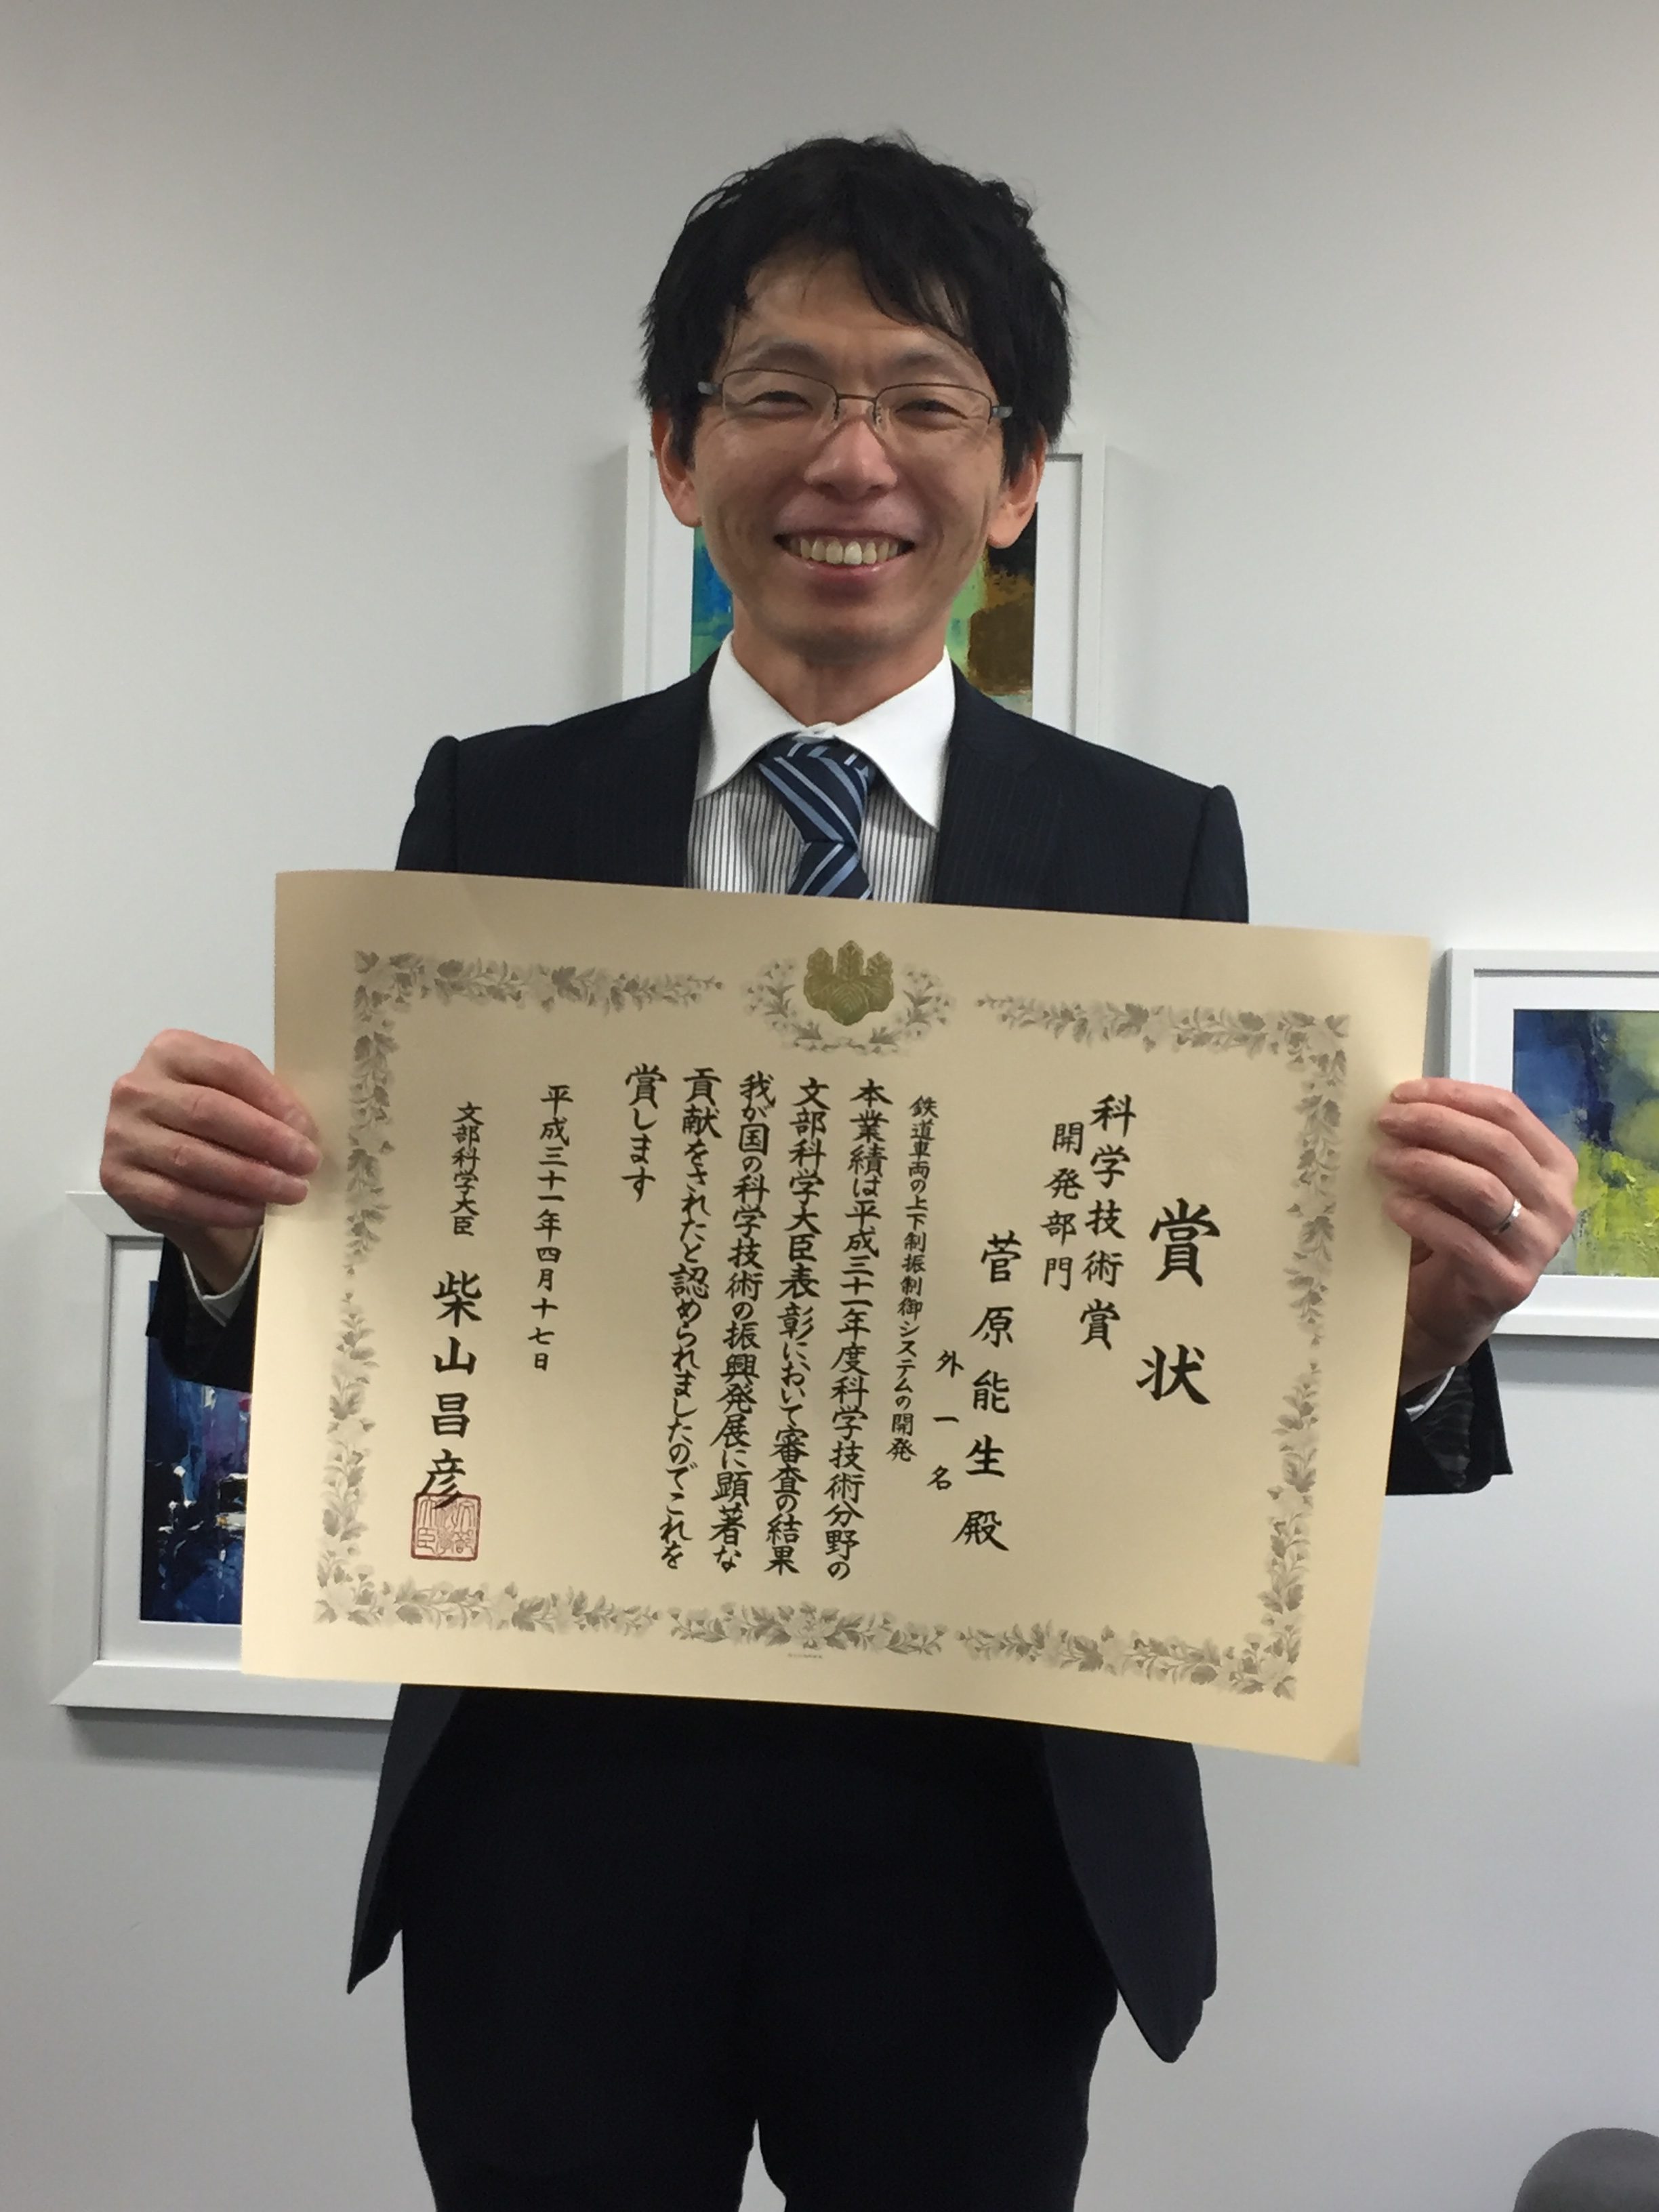 賞状
科学技術賞
開発部門
菅原能生殿
外一名
鉄道車両の上下制振制御システムの開発
本業績は平成三十一年度科学技術分野の
文部科学大臣表彰において審査の結果
我が国の科学技術の振興発展に顕著な
貢献をされたと認められましたのでこれを
賞します
平成三十一年四月十七日
文部科学大臣 柴山昌彦